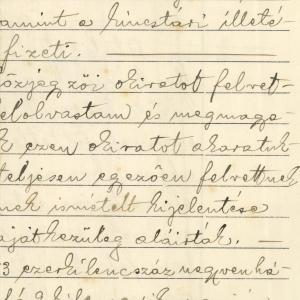 amint a kincstári illeté-
fizeti.
özjegyzői okiratot felvet-
elolvastam és megmagya-
k ezen okiratot akaratuk-
teljesen egyezően felvettnek
nek ismételt kijelentése
aját kezűleg aláírták.
3 ezerkilencszáznegyvenhá-